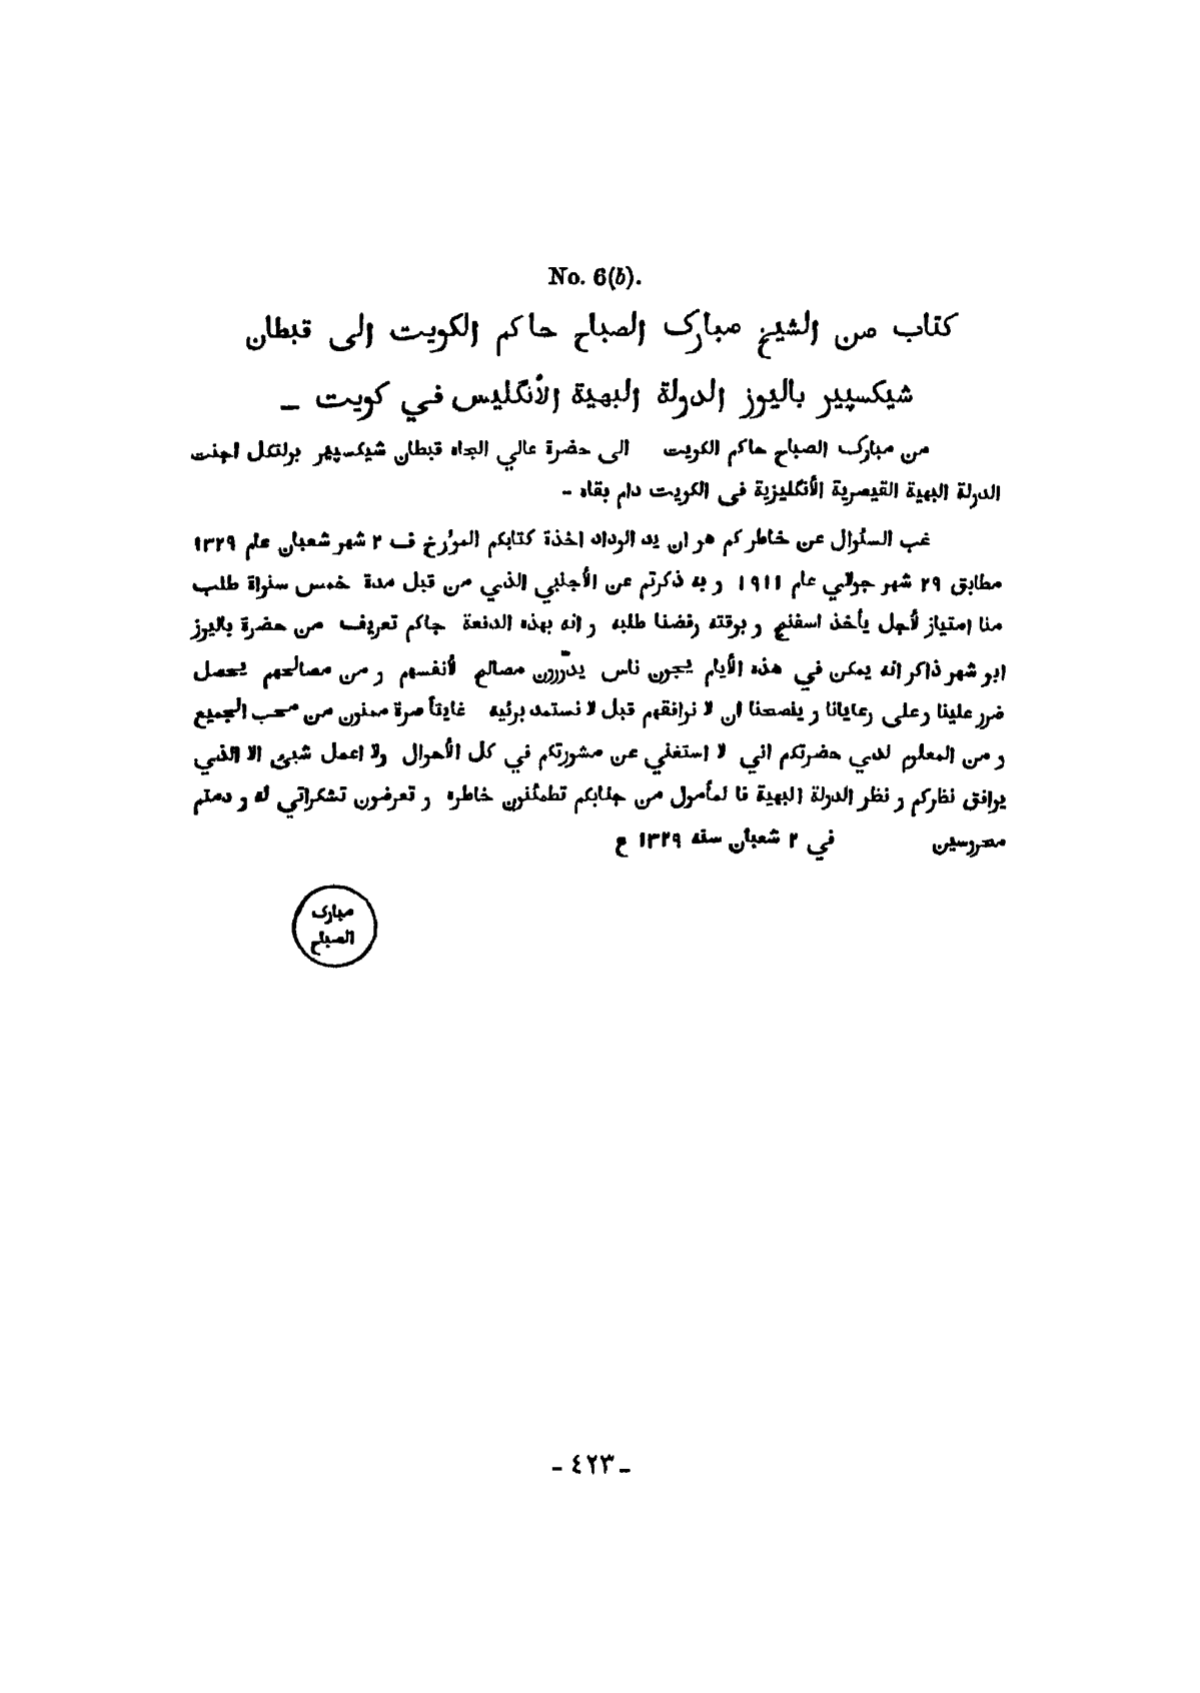 No. 6(b).
كتاب من الشيخ مبارك الصباح حاكم الكويت الى قبطان
شيكسپير باليوز الدولة البهية الأنگليس في كويت ــ
من مبارك الصباح حاكم الكويت الى حضرة عالي الجاه قبطان شيكسپير برلتكل اجنت
الدولة البهية القيصرية الأنگليزية فى الكويت دام بقاه -
غب السئوال عن خاطركم هو ان يد الوداد اخذة كتابكم المؤرخ ف ٢ شهر شعبان عام ١٣٢٩
مطابق ٢٩ شهر جولاي عام ١٩١١ و به ذكرتم عن الأجنبي الذي من قبل مدة خمس سنواة طلب
منا امتياز لأجل يأخذ اسفنج و بوقته رفضنا طلبه و انه بهذه الدفعة جاكم تعريف من حضرة باليوز
ابو شهر ذاكر انه يمكن في هذه الأيام يجون ناس يدّورون مصالح لأنفسهم و من مصالحهم يحصل
ضرر علينا وعلى رعايانا و ينصحنا ان لا نرافقهم قبل لا نستمد برئيه غايتأ صرة ممنون من محب الجميع
و من المعلوم لدي حضرتكم اني لا استغني عن مشورتكم في كل الأحوال ولا اعمل شيئ الا الذي
يوافق نظركم و نظر الدولة البهية فا لمأمول من جنابكم تطمئنون خاطره و تعرضون تشكراتي له و دمتم
محروسين في ٢ شعبان سنه ١٣٢٩ ع
مبارك
الصباح
- ٤٢٣ -